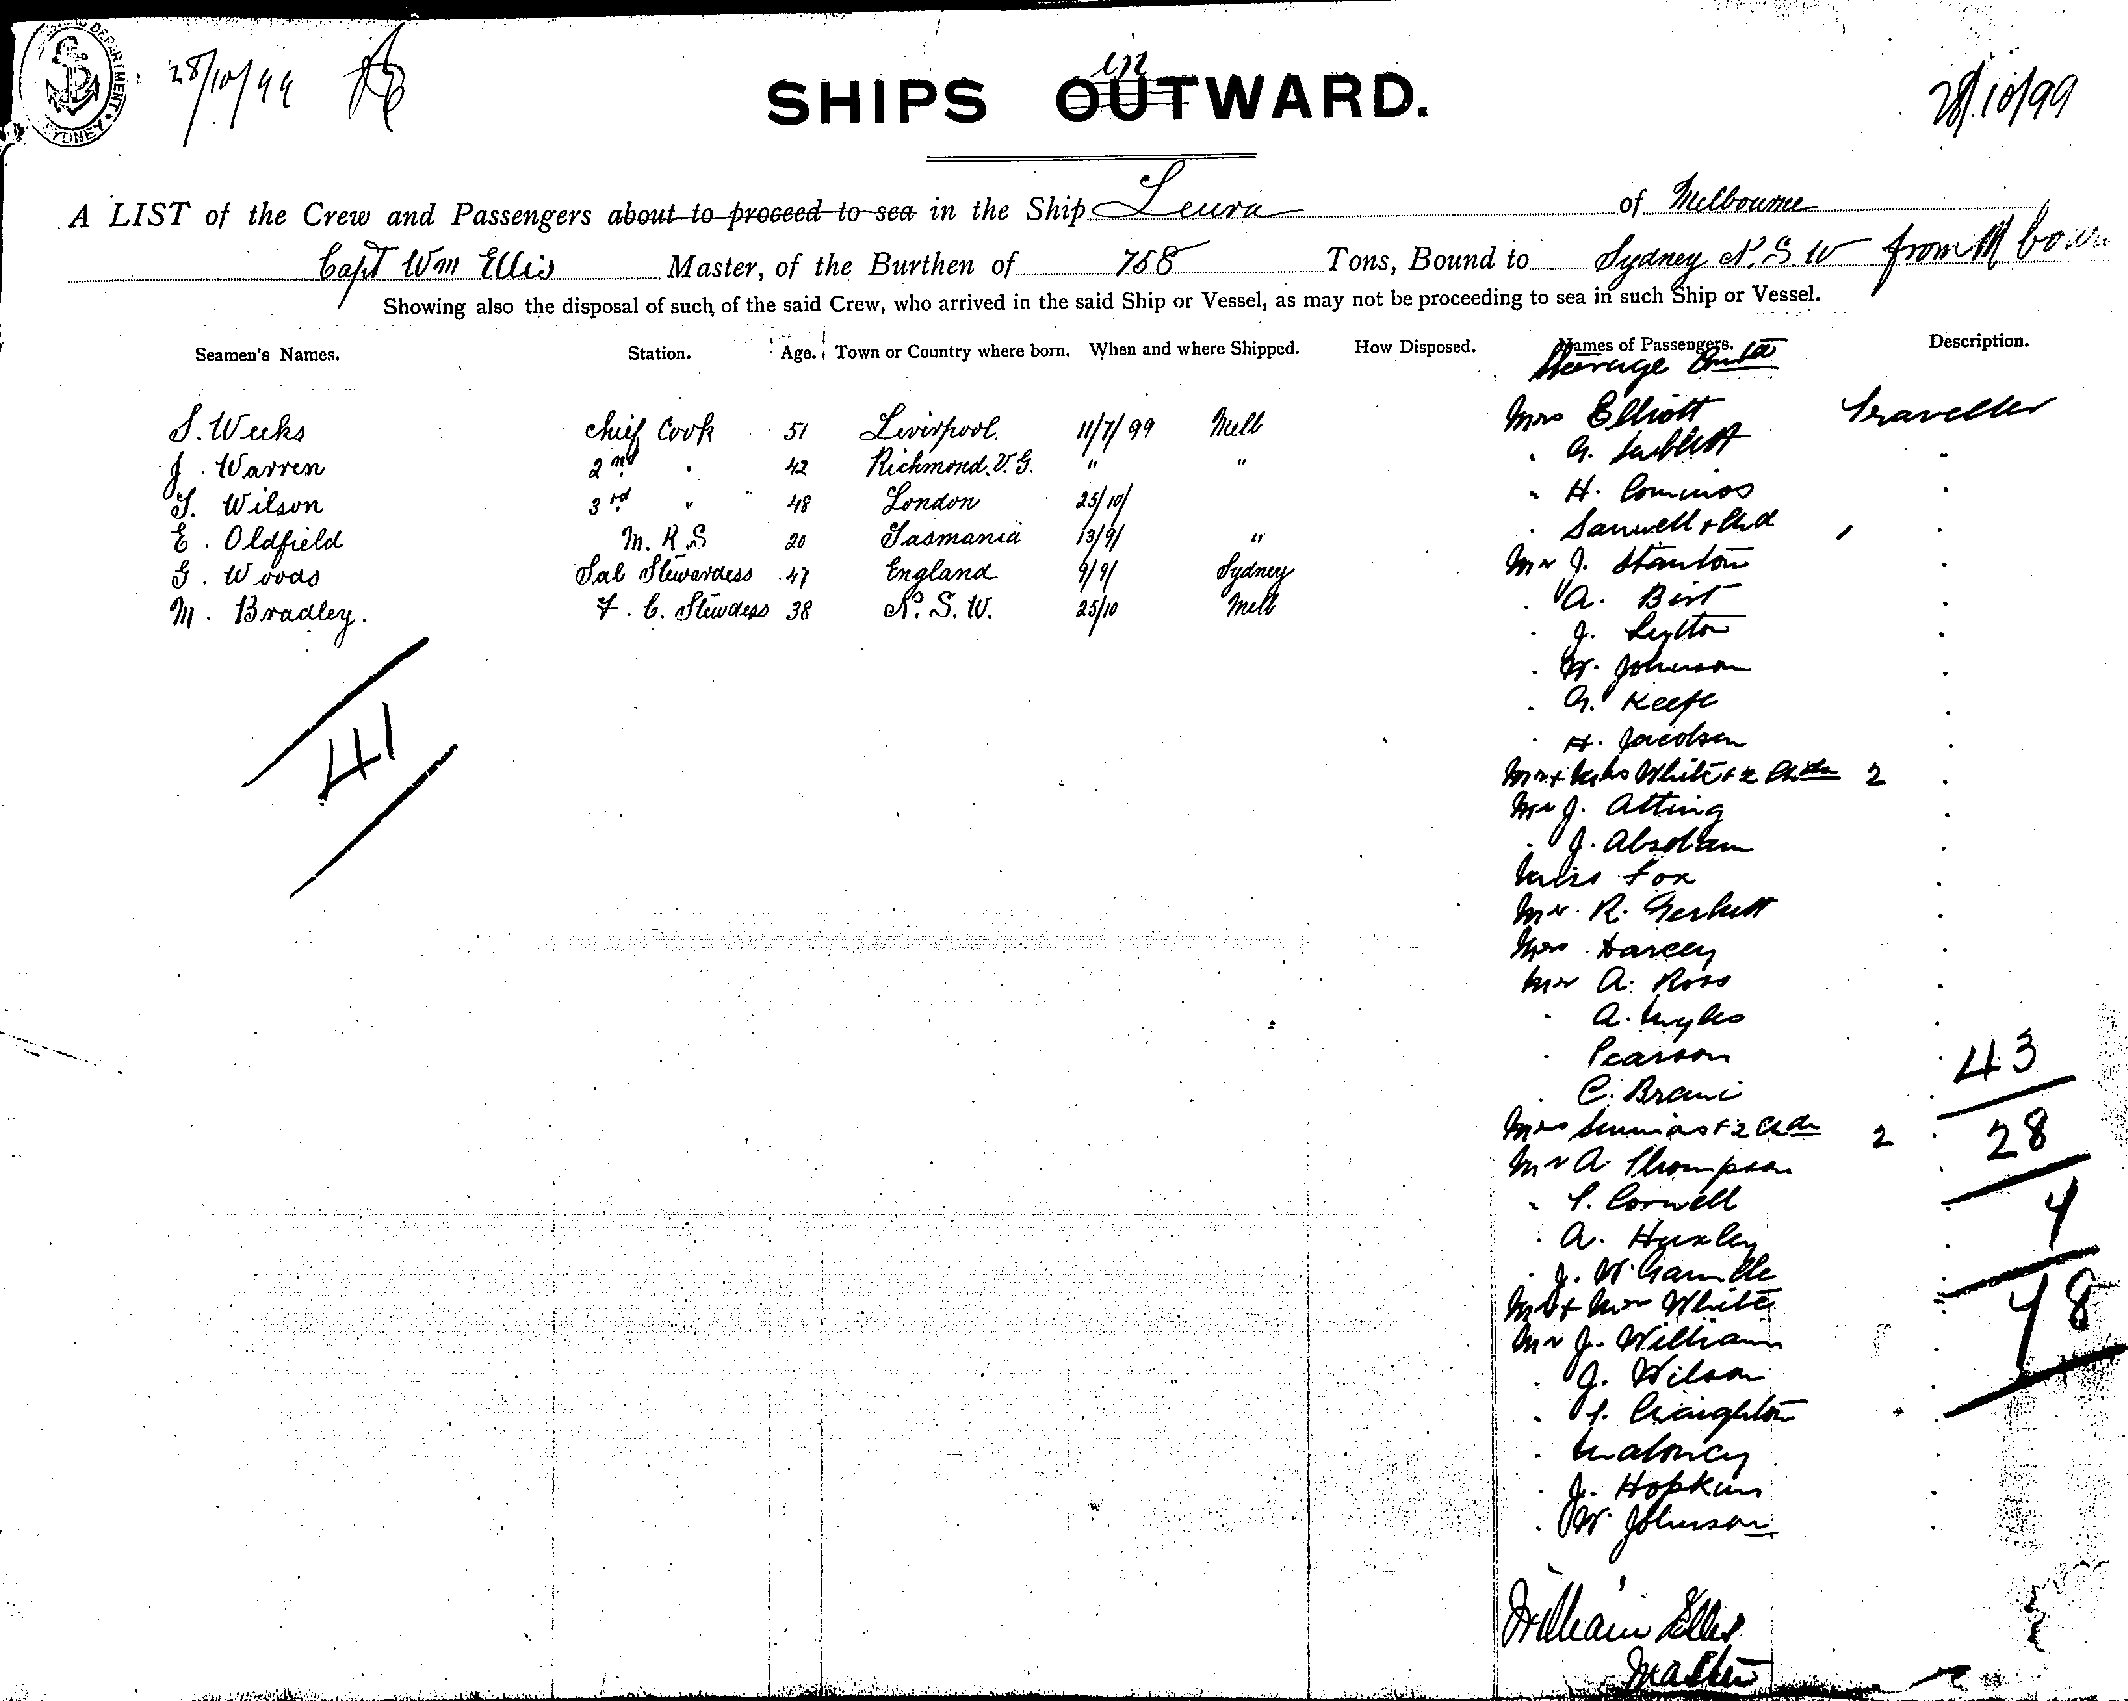 DEPARTMENT
SYDNEY
28/10/99
28/10/99
in
SHIPS OUTWARD.
A LIST of the Crew and Passengers about to proceed to sea in the Ship Leura of Melbourne
Capt Wm Ellis Master, of the Burthen of 758 Tons, Bound to Sydney N.S.W from
Showing also the disposal of such of the said Crew, who arrived in the said Ship or Vessel, as may not be proceeding to sea in such Ship or Vessel.
Seamen's Names. Station. Age. Town or Country where born. When and where Shipped. How Disposed. Names of Passengers. Description.
Steerage
S. Weeks chief Cook 51 Liverpool. 11/7/99 Melb
J. Warren 2nd . 42 Richmond. V.G. " "
T. Wilson 3rd " 48 London 25/10/
E. Oldfield M.R.S 20 Tasmania 13/9/ "
G. Woods Sal Stewardess 47 England 9/9/ Sydney
M. Bradley. F.C. Stewdess 38 N.S.W. 25/10 Melb
41
Mrs Elliott Traveller
" H. Cominos
Mr J. Stanton
A. Birt
J. Lytton
W. Johnson
G. Keefe
H. Jacobsen
Mr & Mrs White & 2 Chdn 2
Mr J. Atting
J. Absolam
Miss Fox
Mr. R.
Mrs Darcey
Mr A. Ross
A. Myles
Pearson
C.
Mrs & 2 Chdn 2
Mr A Thompson
" S. Cornwell
A. Huxley
J. W.
Mr & Mrs White
Mr J. Williams
J. Wilson
Craighton
Maloney
J. Hopkins
W. Johnson
43
28
4
48
William Ellis
Master